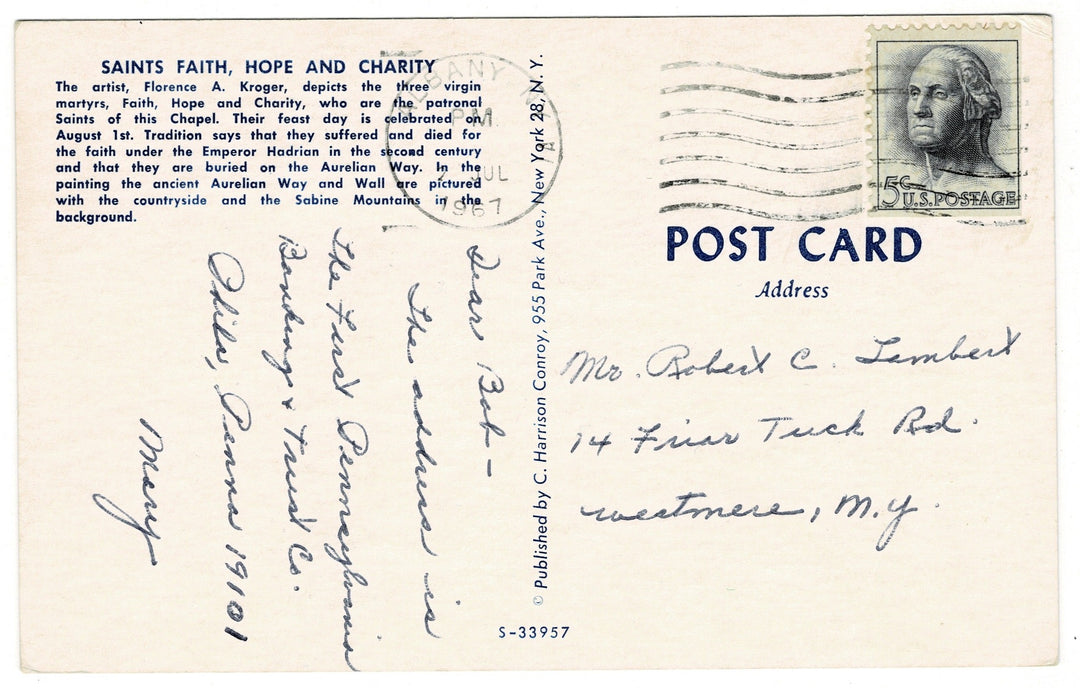 SAINTS FAITH, HOPE AND CHARITY
The artist, Florence A. Kroger, depicts the three virgin
martyrs, Faith, Hope and Charity, who are the patronal
Saints of this Chapel. Their feast day is celebrated on
August 1st. Tradition says that they suffered and died for
the faith under the Emperor Hadrian in the second century
and that they are buried on the Aurelian Way. In the
painting the ancient Aurelian Way and Wall are pictured
with the countryside and the Sabine Mountains in the
background.
ALBANY
PM
JUL
1967
5c U.S. POSTAGE
POST CARD
Address
Dear Bob—
The address is
The First Pennsylvania
Banking & Trust Co.
Phila, Penna 19101
Mary
© Published by C. Harrison Conroy, 955 Park Ave., New York 28, N. Y.
Mr. Robert C. Lambert
14 Friar Tuck Rd.
Westmere, N.Y.
S-33957